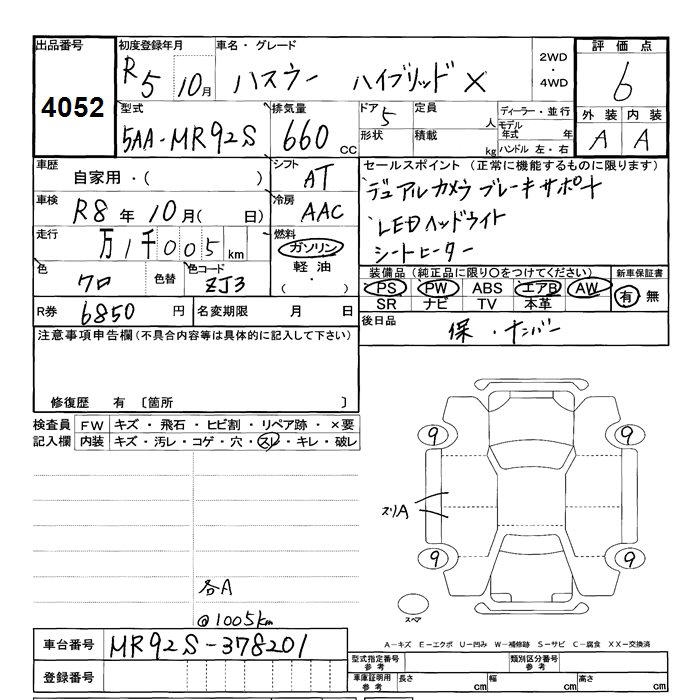 出品番号 初度登録年月 車名・グレード 2WD・4WD 評価点
4052 R5 10月 ハスラー ハイブリッド X 6
型式 排気量 ドア 定員 人 ディーラー・並行 外装 内装
5AA-MR92S 660 CC 5 形状 積載 kg モデル年式 年 ハンドル 左・右 A A
車歴 自家用・( ) シフト AT セールスポイント (正常に機能するものに限ります)
車検 R8年 10月( 日) 冷房 AAC デュアルカメラブレーキサポート
走行 万1千005km 燃料 ガソリン LEDヘッドライト
軽油 ・( ) シートヒーター
色 クロ 色替 色コード ZJ3 装備品(純正品に限り〇をつけてください) 新車保証書
PS PW ABS エアB AW 有 無
SR ナビ TV 本革
R券 6850円 名変期限 月 日 後日品 保・ナンバー
注意事項申告欄(不具合内容等は具体的に記入して下さい)
修復歴 有 〔箇所 〕
検査員 FW キズ・飛石・ヒビ割・リペア跡・×要
記入欄 内装 キズ・汚レ・コゲ・穴・スレ・キレ・破レ
9 9
ズリA
9 9
各A
@1005km
スペア
A-キズ E-エクボ U-凹み W-補修跡 S-サビ C-腐食 XX-交換済
車台番号 MR92S-378201
型式指定番号 参考 類別区分番号 参考
登録番号 車庫証明用 参考 長さ cm 幅 cm 高さ cm